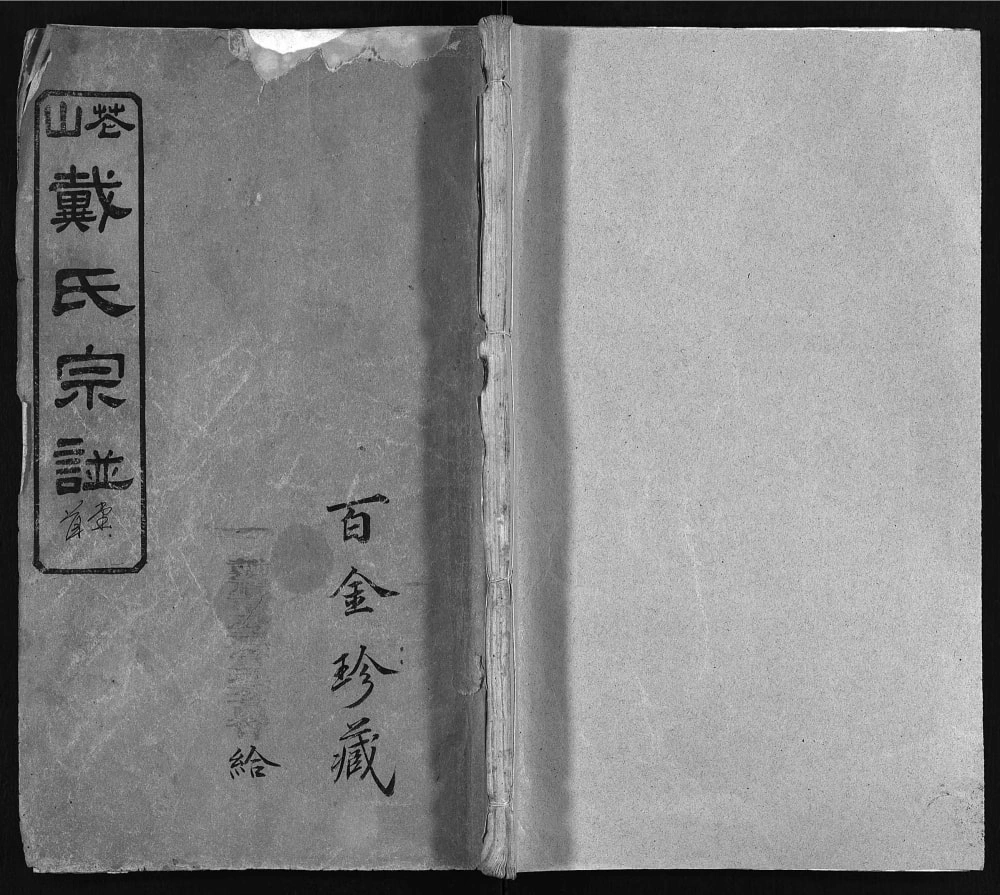 百金珍藏
給
山
戴氏宗譜
卷首